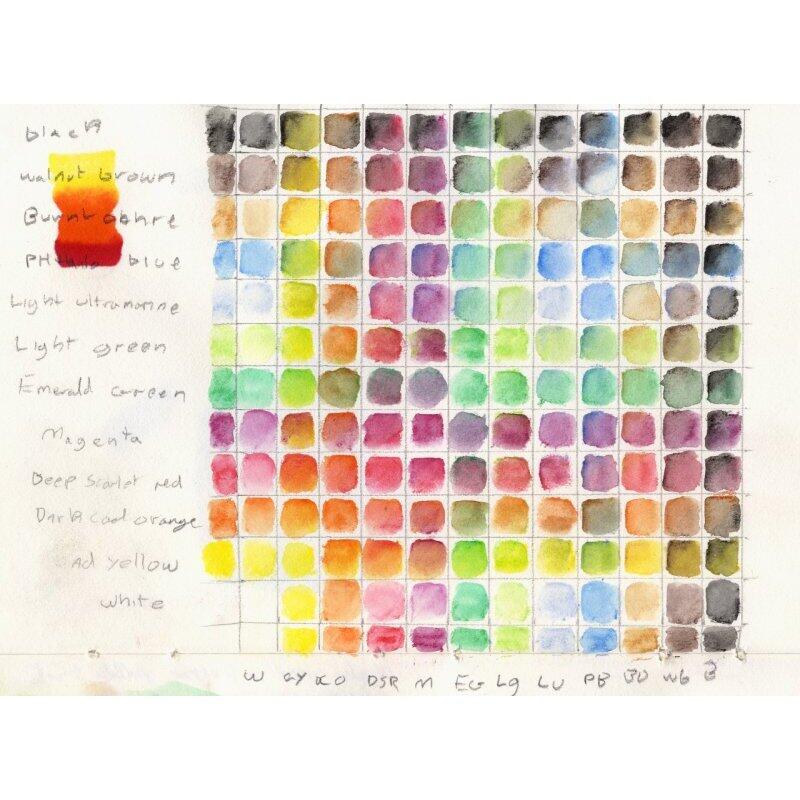 black
walnut brown
Burnt ochre
PHthalo blue
Light ultramarine
Light green
Emerald Green
Magenta
Deep Scarlet red
Dark Cad orange
Cad Yellow
White
W CY DSR M EG Lg LU PB BO wb B